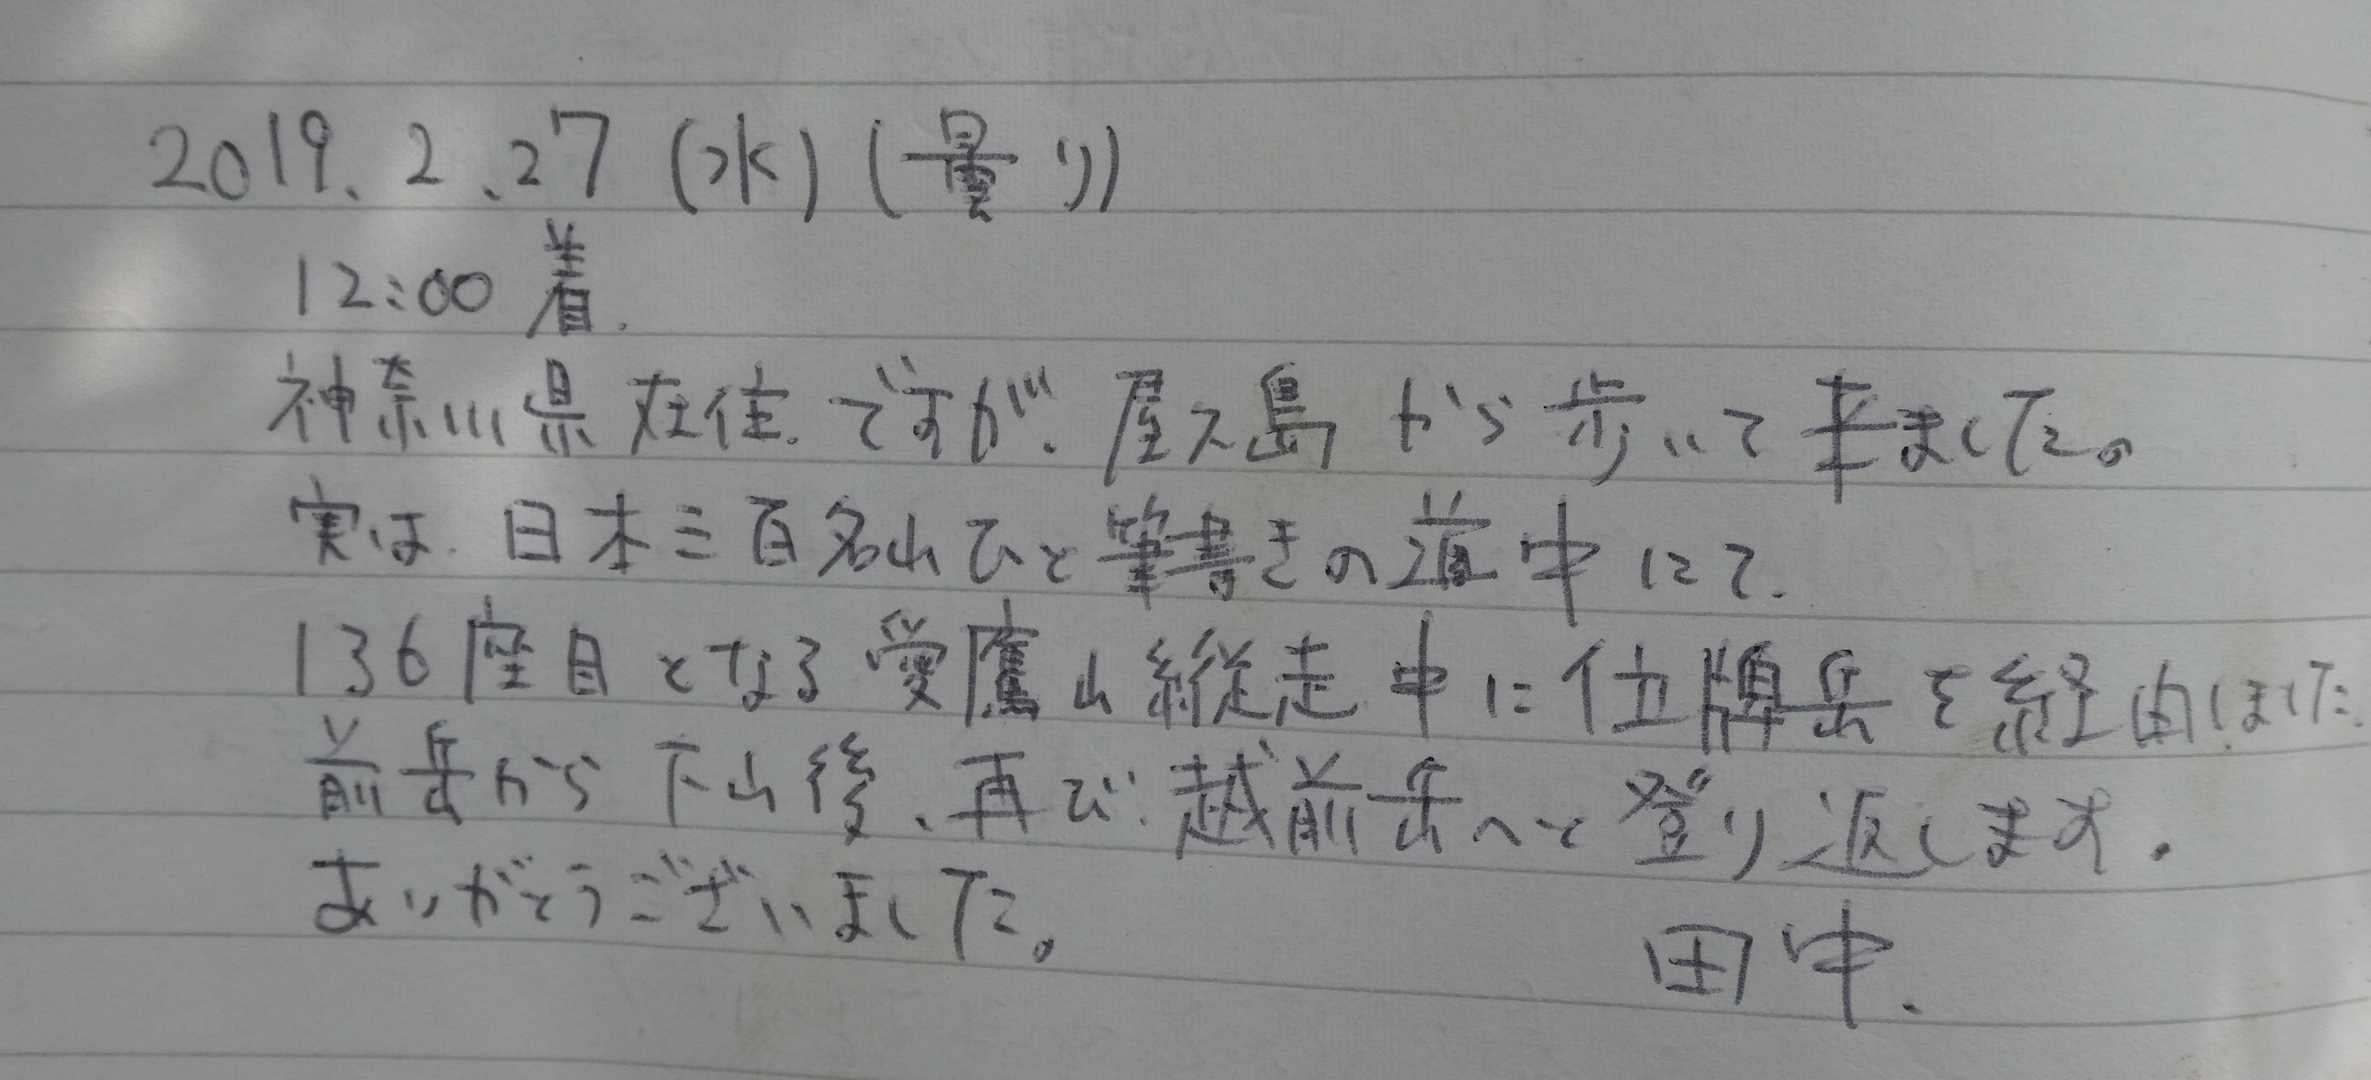 2019.2.27 (水) (曇り)
12:00 着.
神奈川県在住.ですが、屋久島から歩いて来ました。
実は.日本三百名山ひと筆書きの道中にて.
136座目となる愛鷹山縦走中に位牌岳を経由しました.
前岳から下山後、再び.越前岳へと登り返します.
ありがとうございました。
田中.